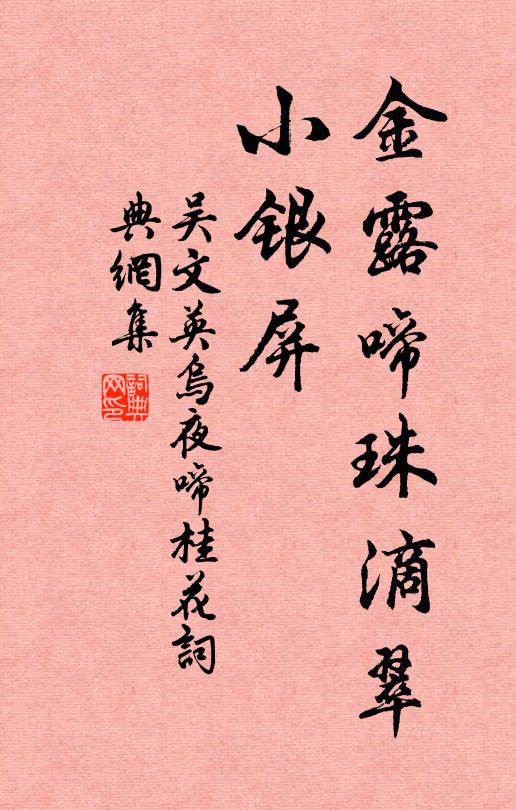 金露啼珠滴翠
小銀屏
吴文英烏夜啼桂花詞
典網集
詞典
网印